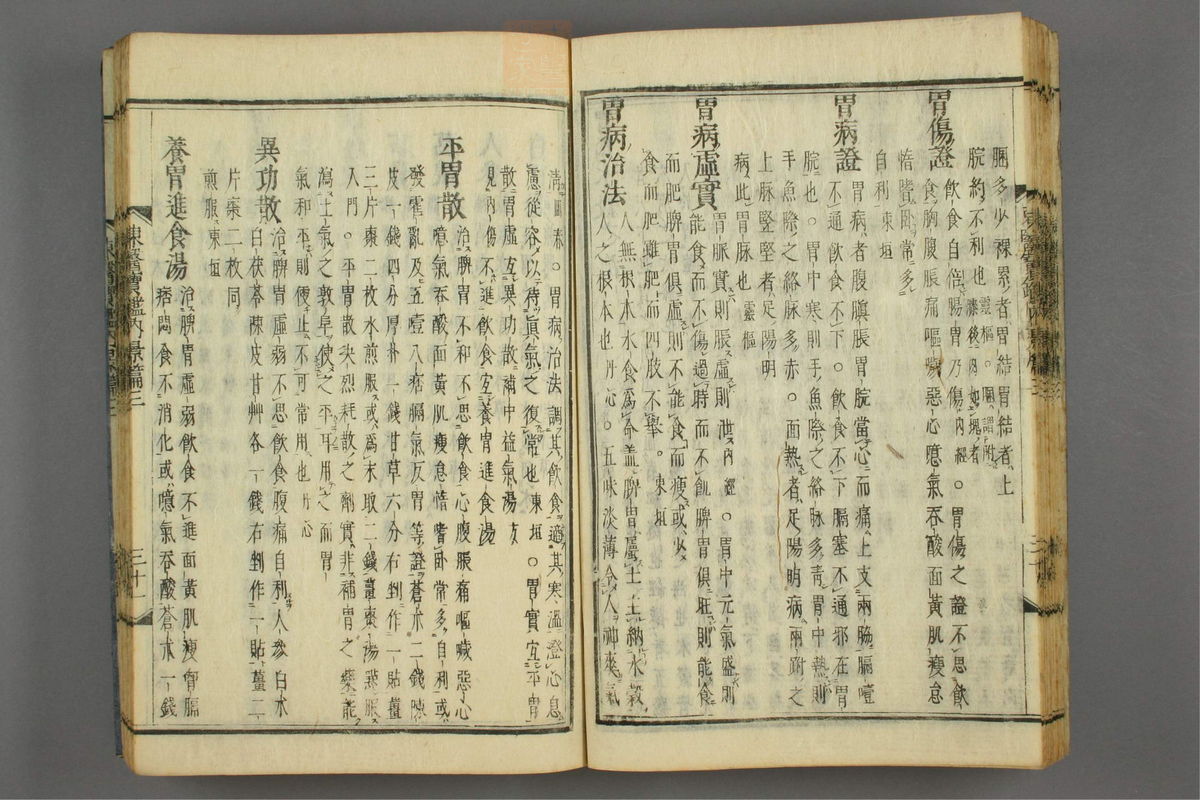 䐃多少裸累者胃結胃結者上
脘約不利也靈樞○䐃謂附
膝後肉如塊者
胃傷證
飮食自倍腸胃乃傷內經○胃傷之證不思飮
食胸腹脹痛嘔噦惡心噫氣吞酸面黃肌瘦怠
惰嗜臥常多
自利東垣
胃病證
胃病者腹䐜脹胃脘當心而痛上支兩脇膈噎
不通飮食不下○飮食不下膈塞不通邪在胃
脘也○胃中寒則手魚際之絡脉多靑胃中熱則
手魚際之絡脉多赤○面熱者足陽明病兩跗之
上脉竪堅者足陽明
病此胃脉也靈樞
胃病虛實
胃脈實則脹虛則泄內經○胃中元氣盛則
能食而不傷過時而不飢脾胃俱旺則能食
而肥脾胃俱虛則不能食而瘦或少
食而肥雖肥而四肢不擧○東垣
胃病治法
人無根本水食爲命盖脾胃屬土主納水穀
人之根本也丹心○五味淡薄令人神爽氣
淸
○胃病治法調其飮食適其寒溫澄心息
慮從容以待眞氣之復常也東垣○胃實宜平胃
散胃虛宜異功散補中益氣湯方
見內傷不進飮食宜養胃進食湯
平胃散
治脾胃不和不思飮食心腹脹痛嘔噦惡心
噫氣吞酸面黃肌瘦怠惰嗜臥常多自利或
發霍亂及五噎八痞膈氣反胃等證蒼朮二錢陳
皮一錢四分厚朴一錢甘草六分右剉作一貼薑
三片棗二枚水煎服或爲末取二錢薑棗湯點服
入門○平胃散決烈耗散之劑實非補胃之藥能
瀉土氣之敦阜使之平耳用之而胃
氣和平則便止不可常用也丹心
異功散
治脾胃虛弱不思飮食腹痛自利人參白朮
白茯苓陳皮甘艸各一錢右剉作一貼薑三
片棗二枚同
煎服東垣
養胃進食湯
治脾胃虛弱飮食不進面黃肌瘦胷膈
痞悶食不消化或噫氣吞酸蒼朮一錢
東醫寶鑑內景篇三
三十一